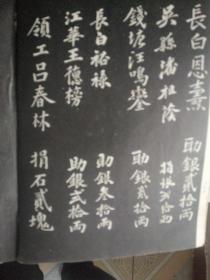 長白恩燾 助銀貳拾兩
吳縣潘祖蔭 捐銀貳拾兩
錢塘汪鳴鑾 助銀貳拾兩
長白裕祿 助銀叁拾兩
江華王德榜 助銀貳拾兩
領工呂春林 捐石貳塊